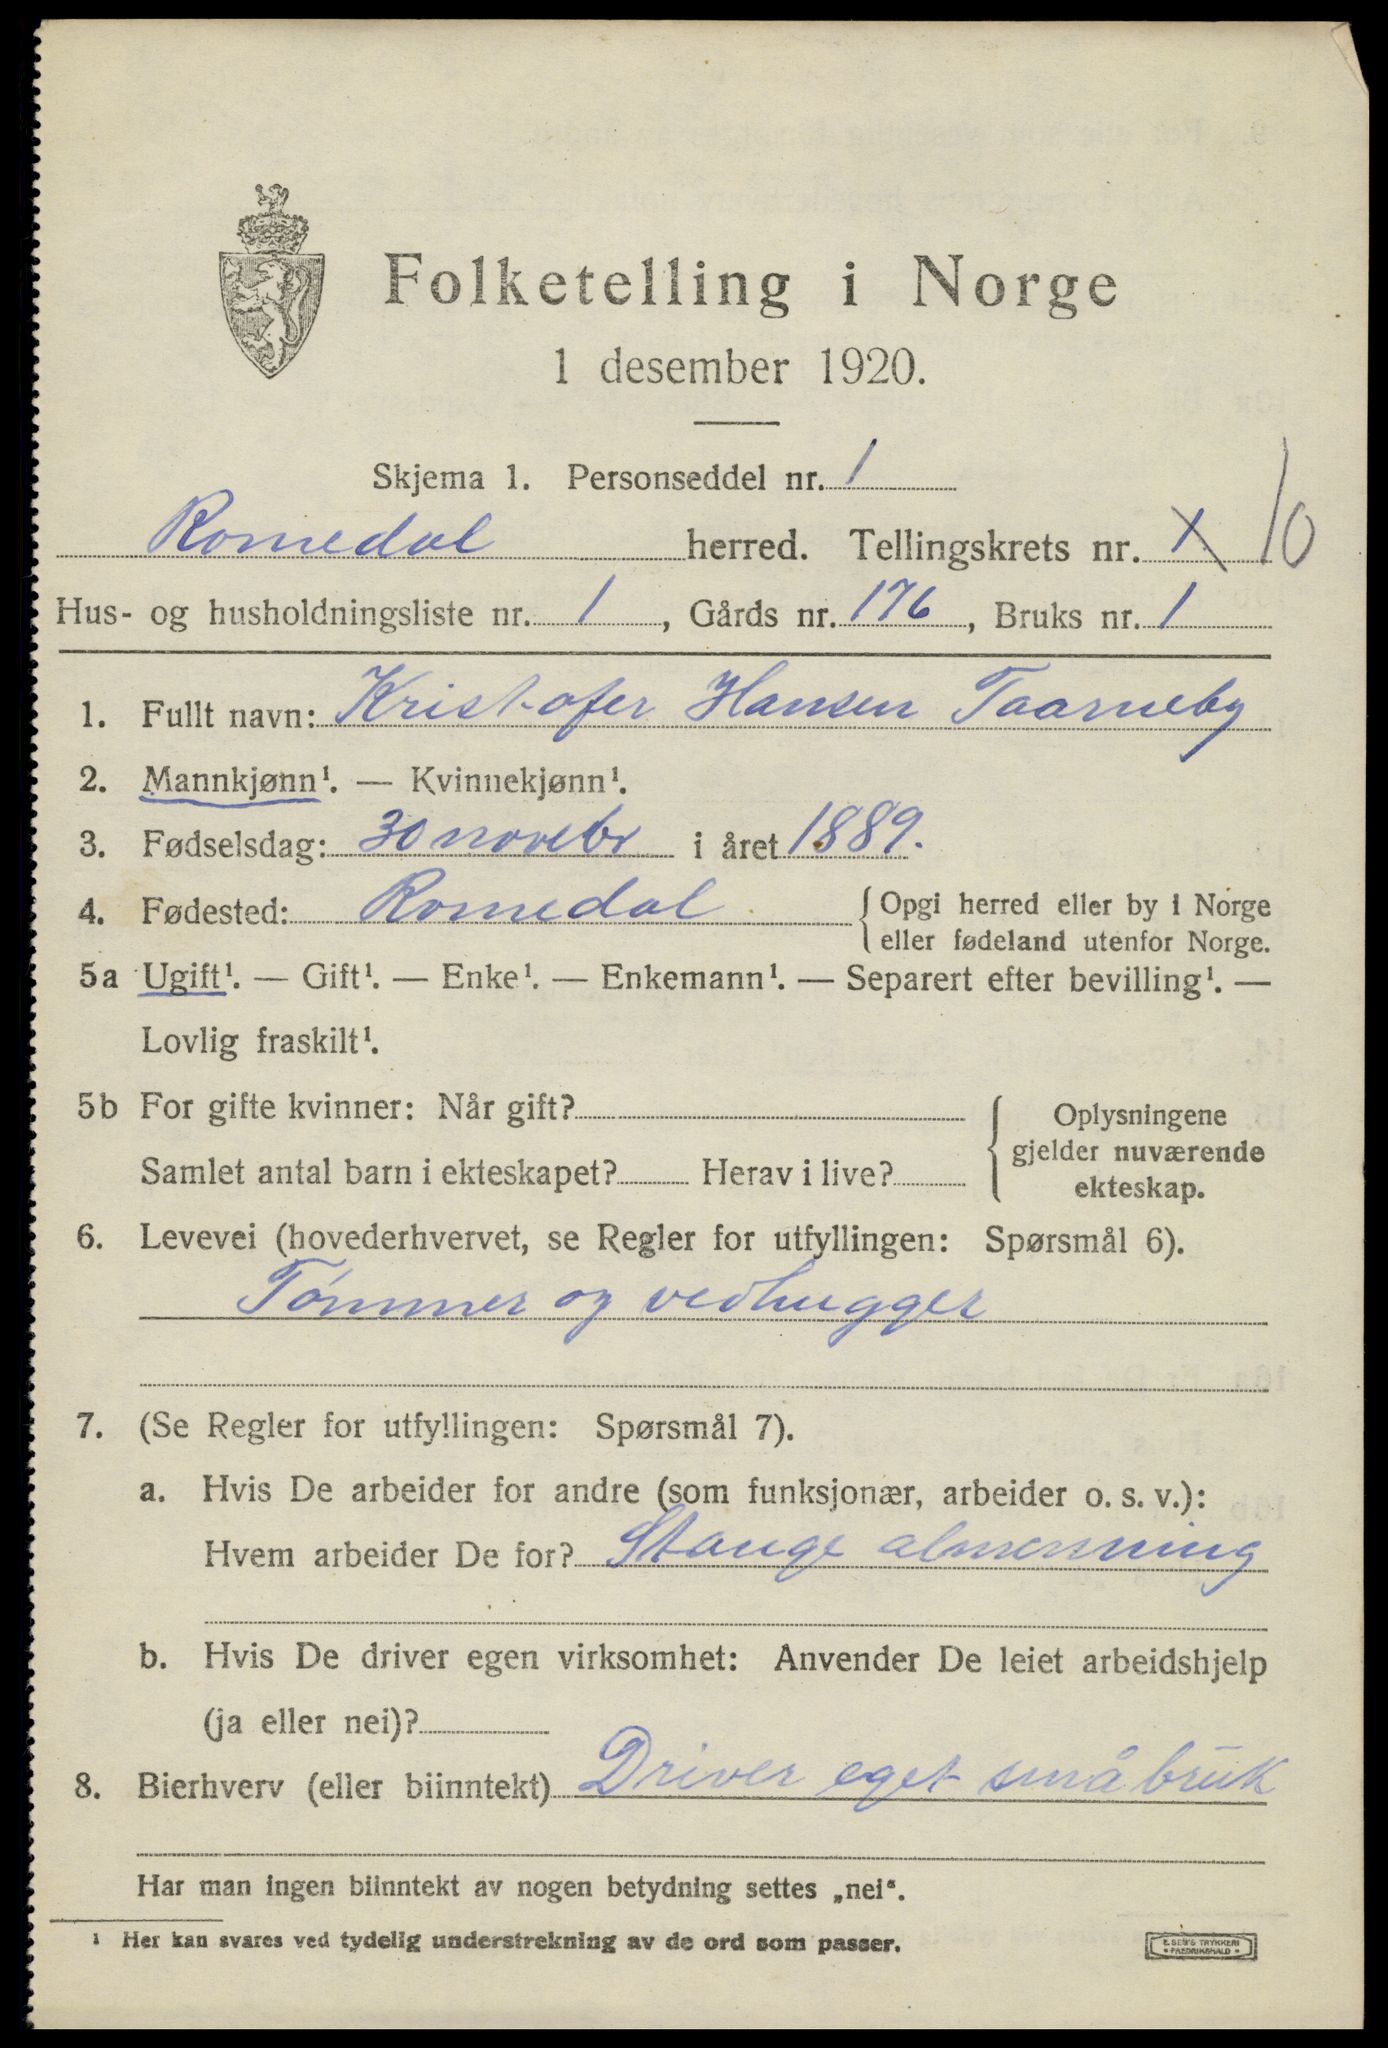 Folketelling i Norge
1 desember 1920.
Skjema 1. Personseddel nr. 1
Romedal herred. Tellingskrets nr. 1 10
Hus- og husholdningsliste nr. 1, Gårds nr. 176, Bruks nr. 1
1. Fullt navn: Kristofer Hansen Taarneby
2. Mannkjønn¹. — Kvinnekjønn¹.
3. Fødselsdag: 30 novebr i året 1889.
4. Fødested: Romedal { Opgi herred eller by i Norge
eller fødeland utenfor Norge.
5a Ugift¹. — Gift¹. — Enke¹. — Enkemann¹. — Separert efter bevilling¹. —
Lovlig fraskilt¹.
5b For gifte kvinner: Når gift?
Samlet antal barn i ekteskapet? Herav i live?
{ Oplysningene
gjelder nuværende
ekteskap.
6. Levevei (hovederhvervet, se Regler for utfyllingen: Spørsmål 6).
Tømmer og vedhugger
7. (Se Regler for utfyllingen: Spørsmål 7).
a. Hvis De arbeider for andre (som funksjonær, arbeider o. s. v.):
Hvem arbeider De for? Stange almenning
b. Hvis De driver egen virksomhet: Anvender De leiet arbeidshjelp
(ja eller nei)?
8. Bierhverv (eller biinntekt) Driver eget småbruk
Har man ingen biinntekt av nogen betydning settes „nei“.
¹ Her kan svares ved tydelig understrekning av de ord som passer.
E. SEM'S TRYKKERI
FREDRIKSHALD